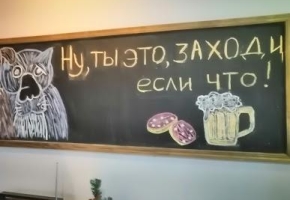 Ну, ты это, ЗАХОДИ
если что!